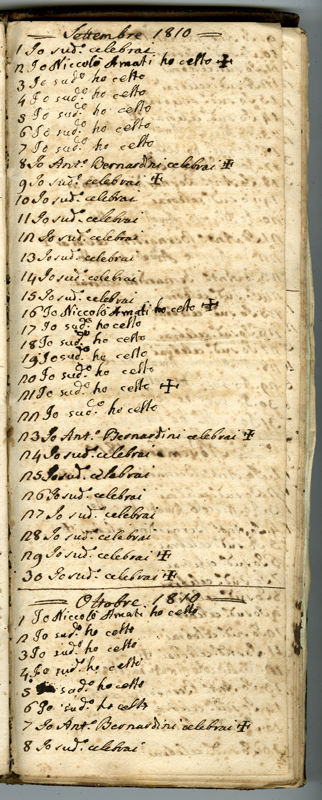 Settembre 1810
1 Io sud.º celebrai
2 Io Niccolò Amati ho celto ✠
3 Io sud.º ho celto
4 Io sud.º ho celto
5 Io sud.º ho celto
6 Io sud.º ho celto
7 Io sud.º ho celto
8 Io Ant.º Bernardini celebrai ✠
9 Io sud.º celebrai ✠
10 Io sud.º celebrai
11 Io sud.º celebrai
12 Io sud.º celebrai
13 Io sud.º celebrai
14 Io sud.º celebrai
15 Io sud.º celebrai
16 Io Niccolò Amati ho celto ✠
17 Io sud.º ho celto
18 Io sud.º ho celto
19 Io sud.º ho celto
20 Io sud.º ho celto
21 Io sud.º ho celto ✠
22 Io sud.º ho celto
23 Io Ant.º Bernardini celebrai ✠
24 Io sud.º celebrai
25 Io sud.º celebrai
26 Io sud.º celebrai
27 Io sud.º celebrai
28 Io sud.º celebrai
29 Io sud.º celebrai ✠
30 Io sud.º celebrai ✠
Ottobre 1810
1 Io Niccolò Amati ho celto
2 Io sud.º ho celto
3 Io sud.º ho celto
4 Io sud.º ho celto
5 sud.º ho celto
6 Io sud.º ho celto
7 Io Ant.º Bernardini celebrai ✠
8 Io sud.º celebrai